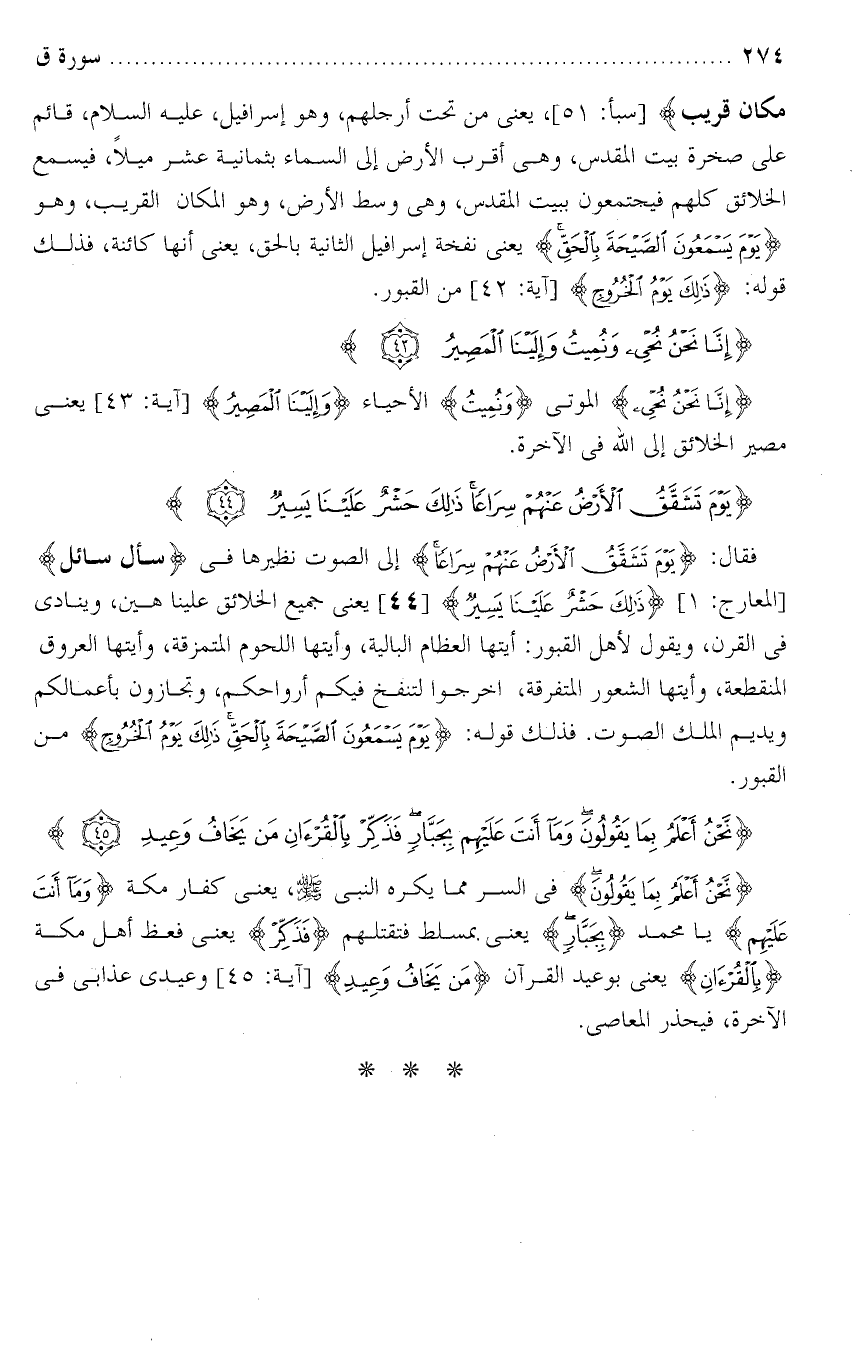 ٢٧٤ ........................................................................... سورة ق
مكان قريب﴾ [سبأ: ٥١]، يعنى من تحت أرجلهم، وهو إسرافيل، عليه السلام، قائم
على صخرة بيت المقدس، وهى أقرب الأرض إلى السماء بثمانية عشر ميلاً، فيسمع
الخلائق كلهم فيجتمعون ببيت المقدس، وهى وسط الأرض، وهو المكان القريب، وهو
﴿يَوْمَ يَسْمَعُونَ ٱلصَّيْحَةَ بِٱلْحَقِّۚ﴾ يعنى نفخة إسرافيل الثانية بالحق، يعنى أنها كائنة، فذلك
قوله: ﴿ذَٰلِكَ يَوْمُ ٱلْخُرُوجِ﴾ [آية: ٤٢] من القبور.
﴿إِنَّا نَحْنُ نُحْىِۦ وَنُمِيتُ وَإِلَيْنَا ٱلْمَصِيرُ ٤٣ ﴾
﴿إِنَّا نَحْنُ نُحْىِۦ﴾ الموتى ﴿وَنُمِيتُ﴾ الأحياء ﴿وَإِلَيْنَا ٱلْمَصِيرُ﴾ [آية: ٤٣] يعنى
مصير الخلائق إلى الله فى الآخرة.
﴿يَوْمَ تَشَقَّقُ ٱلْأَرْضُ عَنْهُمْ سِرَاعًاۚ ذَٰلِكَ حَشْرٌ عَلَيْنَا يَسِيرٌ ٤٤ ﴾
فقال: ﴿يَوْمَ تَشَقَّقُ ٱلْأَرْضُ عَنْهُمْ سِرَاعًاۚ﴾ إلى الصوت نظيرها فى ﴿سأل سائل﴾
[المعارج: ١] ﴿ذَٰلِكَ حَشْرٌ عَلَيْنَا يَسِيرٌ﴾ [٤٤] يعنى جميع الخلائق علينا هين، وينادى
فى القرن، ويقول لأهل القبور: أيتها العظام البالية، وأيتها اللحوم المتمزقة، وأيتها العروق
المنقطعة، وأيتها الشعور المتفرقة، اخرجوا لتنفخ فيكم أرواحكم، وتجازون بأعمالكم
ويديم الملك الصوت. فذلك قوله: ﴿يَوْمَ يَسْمَعُونَ ٱلصَّيْحَةَ بِٱلْحَقِّۚ ذَٰلِكَ يَوْمُ ٱلْخُرُوجِ﴾ من
القبور.
﴿نَّحْنُ أَعْلَمُ بِمَا يَقُولُونَۖ وَمَآ أَنتَ عَلَيْهِم بِجَبَّارٍۖ فَذَكِّرْ بِٱلْقُرْءَانِ مَن يَخَافُ وَعِيدِ ٤٥ ﴾
﴿نَّحْنُ أَعْلَمُ بِمَا يَقُولُونَۖ﴾ فى السر مما يكره النبى ﷺ، يعنى كفار مكة ﴿وَمَآ أَنتَ
عَلَيْهِم﴾ يا محمد ﴿بِجَبَّارٍۖ﴾ يعنى بمسلط فتقتلهم ﴿فَذَكِّرْ﴾ يعنى فعظ أهل مكة
﴿بِٱلْقُرْءَانِ﴾ يعنى بوعيد القرآن ﴿مَن يَخَافُ وَعِيدِ﴾ [آية: ٤٥] وعيدى عذابى فى
الآخرة، فيحذر المعاصى.
* * *